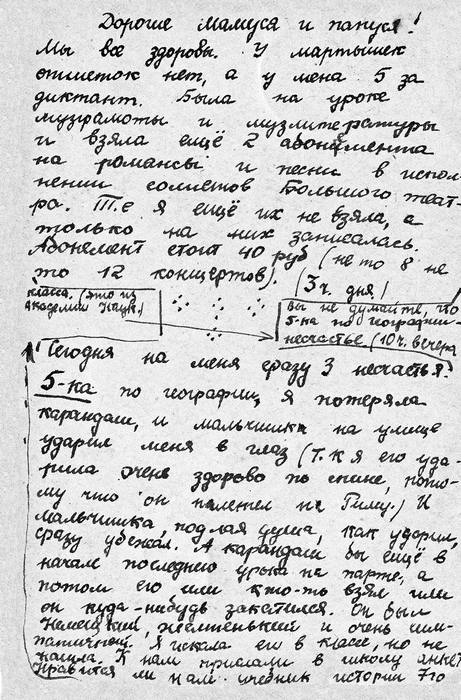 Дорогие Мамуся и папуся!
Мы все здоровы. У мартышек
отметок нет, а у меня 5 за
диктант. Была на уроке
музграмоты и музлитературы
и взяла ещё 2 абонемента
на романсы и песни в испол-
нении солистов Большого теат-
ра. Т.е я ещё их не взяла, а
только на них записалась.
Абонемент стоит 40 руб (не то 8 не
то 12 концертов). (3 ч. дня!
класса. (это из
Академии Наук.)
Вы не думайте, что
5-ка по географии-
несчастье. (10 ч. вечера
Сегодня на меня сразу 3 несчастья.
5-ка по географии, я потеряла
карандаш, и мальчишка на улице
ударил меня в глаз (т.к я его уда-
рила очень здорово по спине, пото-
му что он налетел на Римму.) И
мальчишка, подлая душа, как ударил,
сразу убежал. А карандаш был ещё в
начале последнего урока на парте, а
потом его или кто-то взял или
он куда-нибудь закатился. Он был
немецкий, желтенький и очень сим-
патичный. Я искала его в классе, но не
нашла. К нам прислали в школу анкет
Нравится ли нам учебник истории 7го